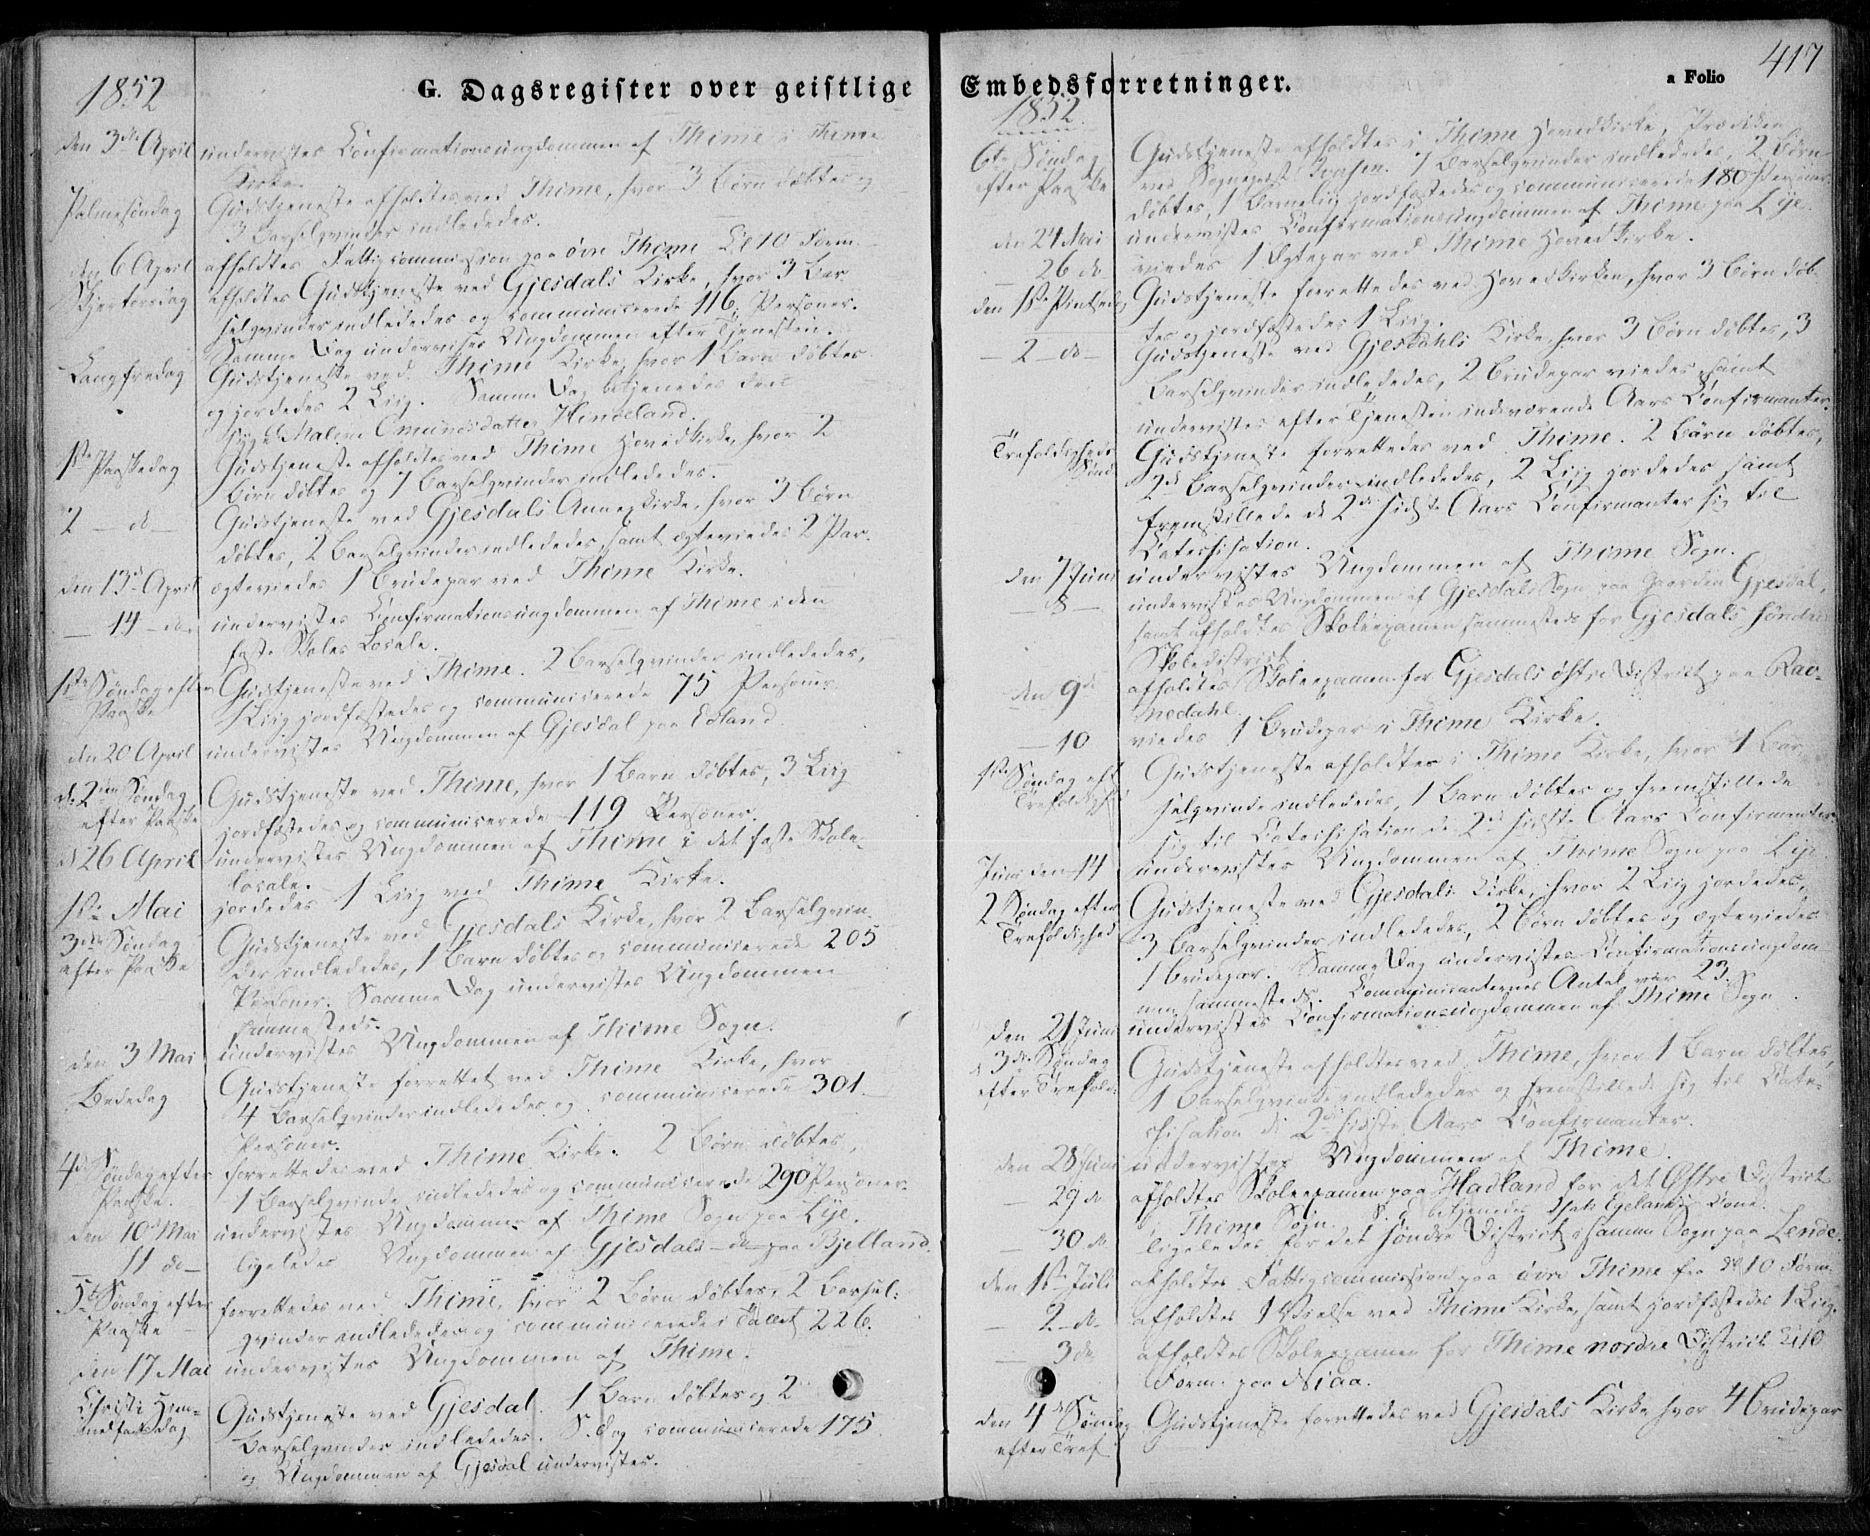 1852
G. Dagsregister over geistlige
den 3die April undervistes Confirmationsungdommen af Thime i Thime
Kirke.
Palmesøndag Gudstjeneste afholdtes ved Thime, hvor 3 Børn døbtes og
3 Barselqvinder indlededes.
den 6 April afholdtes Fattigcommission paa øvre Thime Kl 10 Form.
Skjertorsdag afholdtes Gudstjeneste ved Gjesdals Kirke, hvor 3 Bar-
selqvinder indlededes og communicerede 116 Personer.
Samme Dag undervistes Ungdommen efter Tjenesten.
Langfredag Gudstjeneste ved Thime Kirke, hvor 1 Barn døbtes
og jordedes 2 Liig. Samme Dag betjenedes den
syge Malene Omundsdatter
1ste Paaskedag Gudstjeneste afholdtes ved Thime Hovedkirke, hvor 2
Børn døbtes og 7 Barselqvinder indlededes.
2 - do - Gudstjeneste ved Gjesdals Annexkirke, hvor 3 Børn
døbtes, 2 Barselqvinder indlededes, samt ægteviedes 2 Par.
den 13de April ægteviedes 1 Brudepar ved Thime Kirke.
- 14 - do - undervistes Confirmationsungdommen af Thime i den
faste Skoles Locale.
1ste Søndag efter Gudstjeneste ved Thime. 2 Barselqvinder indlededes,
Paaske 1 Liig jordfæstedes og communicerede 75 Personer.
den 20 April undervistes Ungdommen af Gjesdal paa Edland.
d. 2den Søndag Gudstjeneste ved Thime, hvor 1 Barn døbtes, 3 Liig
efter Paaske jordfæstedes og communicerede 119 Personer.
d 26 April undervistes Ungdommen af Thime i det faste Skole-
locale.
1ste Mai jordedes 1 Liig ved Thime Kirke.
3die Søndag Gudstjeneste ved Gjesdals Kirke, hvor 2 Barselqvin-
efter Paaske der indlededes, 1 Barn døbtes og communicerede 205
Personer. Samme Dag undervistes Ungdommen
sammesteds.
den 3 Mai undervistes Ungdommen af Thime Sogn.
Bededag Gudstjeneste forrettet ved Thime Kirke, hvor
4 Barselqvinder indlededes og communicerede 301
Personer.
4de Søndag efter forrettedes ved Thime Kirke. 2 Børn døbtes,
Paaske. 1 Barselqvinde indlededes og communicerede 290 Personer.
den 10de Mai undervistes Ungdommen af Thime Sogn paa Lye.
- 11 do - ligeledes Ungdommen af Gjesdals - do - paa Bjelland.
5te Søndag efter forrettedes ved Thime, hvor 2 Børn døbtes, 2 Barsel-
Paaske qvinder indlededes og communicerede i Tallet 226.
den 17 Mai undervistes Ungdommen af Thime.
Christi Him- Gudstjeneste ved Gjesdal. 1 Barn døbtes og 2
melfartsdag Barselqvinder indlededes. S. Dag communicerede 175
og Ungdommen af Gjesdal undervistes.
417
Embedsforretninger.
a Folio
1852
6te Søndag Gudstjeneste afholdtes i Thime Hovedkirke, Prædiken
efter Paaske ved Sognepræst 7 Barselqvinder indlededes, 2 Børn
døbtes, 1 Barnelig jordfæstedes og communicerede 180 Personer.
den 24 Mai undervistes Confirmationsungdommen af Thime paa Lye.
26 do viedes 1 Ægtepar ved Thime Hovedkirke.
den 1ste Pintsedag Gudstjeneste forrettedes ved Hovedkirken, hvor 3 Børn døb-
tes og jordfæstedes 1 Liig.
- 2 - do - Gudstjeneste ved Gjesdahls Kirke, hvor 3 Børn døbtes, 3
Barselqvinder indlededes, 2 Brudepar viedes samt
undervistes efter Tjenesten indeværende Aars Confirmanter.
Trefoldigheds Gudstjeneste forrettedes ved Thime. 2 Børn døbtes,
Sønd. 2de Barselqvinder indlededes, 2 Liig jordedes samt
fremstillede de 2de sidste Aars Confirmanter sig til
Catechisation.
den 7 Juni undervistes Ungdommen af Thime Sogn.
- 8 - undervistes Ungdommen af Gjesdals Sogn paa Gaarden Gjesdal,
samt afholdtes Skoleexamen sammesteds for Gjesdals søndre
Skoledistrict.
den 9de afholdtes Skoleexamen for Gjesdals østre District paa Rav-
nedahl.
- 10 viedes 1 Brudepar i Thime Kirke.
1ste Søndag eft. Gudstjeneste afholdtes i Thime Kirke, hvor 1 Bar-
Trefoldighed selqvinde indlededes, 1 Barn døbtes og fremstillede
sig til Catechisation de 2de sidste Aars Confirmanter.
Juni den 14 undervistes Ungdommen af Thime Sogn paa Lye.
2 Søndag efter Gudstjeneste ved Gjesdals Kirke, hvor 2 Liig jordedes,
Trefoldighed 3 Barselqvinder indlededes, 2 Børn døbtes og ægteviedes
1 Brudepar. Samme Dag undervistes Confirmationsungdom-
men sammesteds. Communicanternes Antal var 23.
den 21 Juni undervistes Confirmationsungdommen af Thime Sogn.
d 3die Søndag Gudstjeneste afholdtes ved Thime, hvor 1 Barn døbtes,
efter Trefold. 1 Barselqvinde indlededes og fremstillede sig til Cate-
chisation de 2de sidste Aars Confirmanter.
den 28 Juni undervistes Ungdommen af Thime.
- 29 do afholdtes Skoleexamen paa Hadland for det Østre District
i Thime Sogn. S. D. betjenedes Egelands Kone.
- 30 do ligeledes for det søndre District i samme Sogn paa Lende.
den 1ste Juli afholdtes Fattigcommission paa øvre Thime fra Kl 10 Form.
- 2 - do afholdtes 1 Vielse ved Thime Kirke, samt jordfæstedes 1 Liig.
- 3 do afholdtes Skoleexamen for Thime nordre District Kl 10
Form. paa Njaa.
den 4de Søndag Gudstjeneste forrettedes ved Gjesdals Kirke hvor 4 Brudepar
efter Tref.